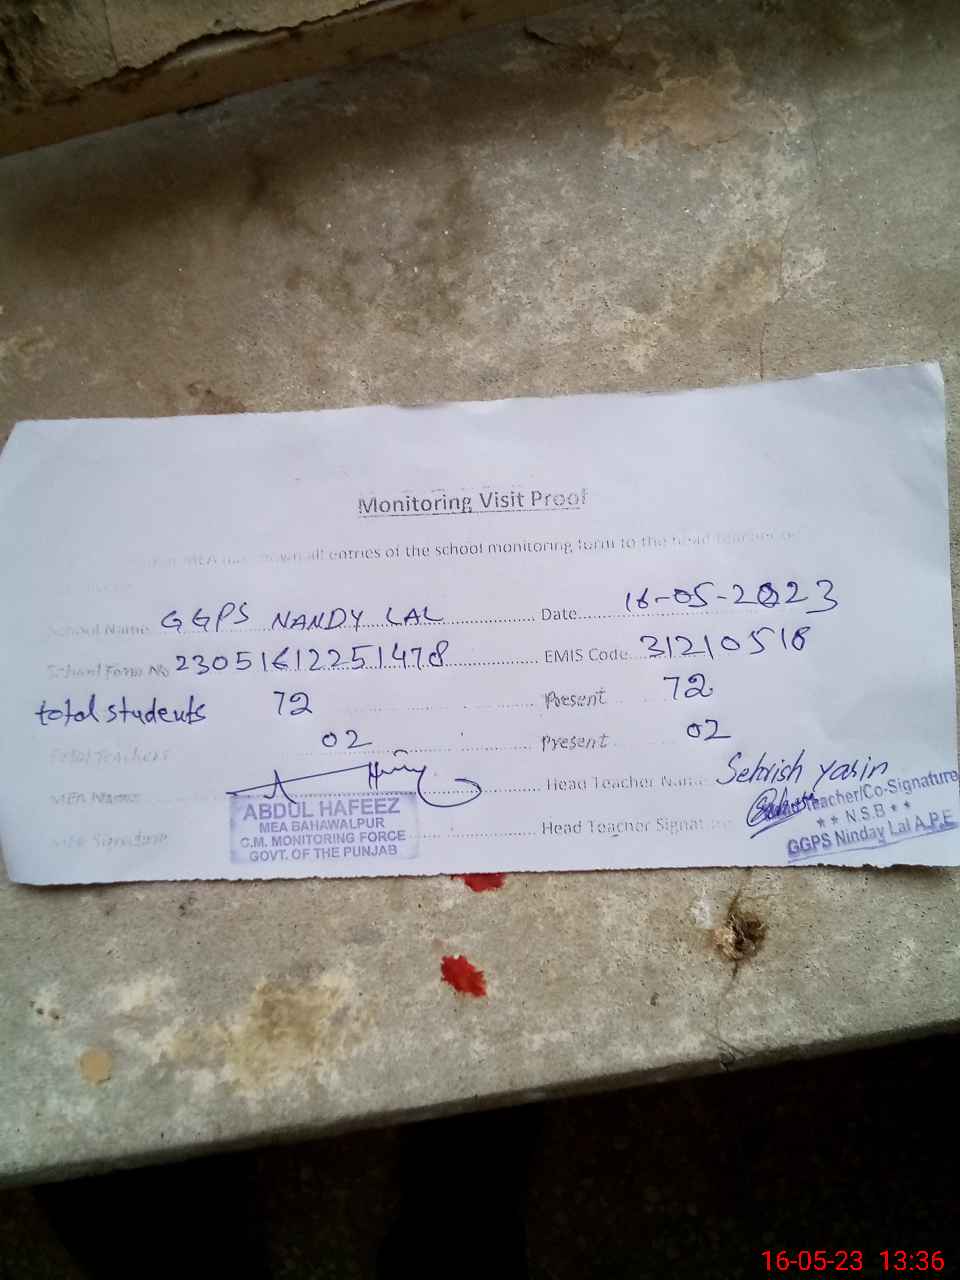 Monitoring Visit Proof
MEA has shown all entries of the school monitoring form to the head teacher or
School Name GGPS NANDY LAL Date 16-05-2023
School Form No 23051612251478 EMIS Code 31210518
total students 72 Present 72
Total Teachers 02 Present 02
MEA Name Head Teacher Name Sehrish yasin
MEA Signature Head Teacher Signature
ABDUL HAFEEZ
MEA BAHAWALPUR
C.M. MONITORING FORCE
GOVT. OF THE PUNJAB
Teacher/Co-Signature
** N.S.B **
GGPS Ninday Lal A.P.E
16-05-23 13:36